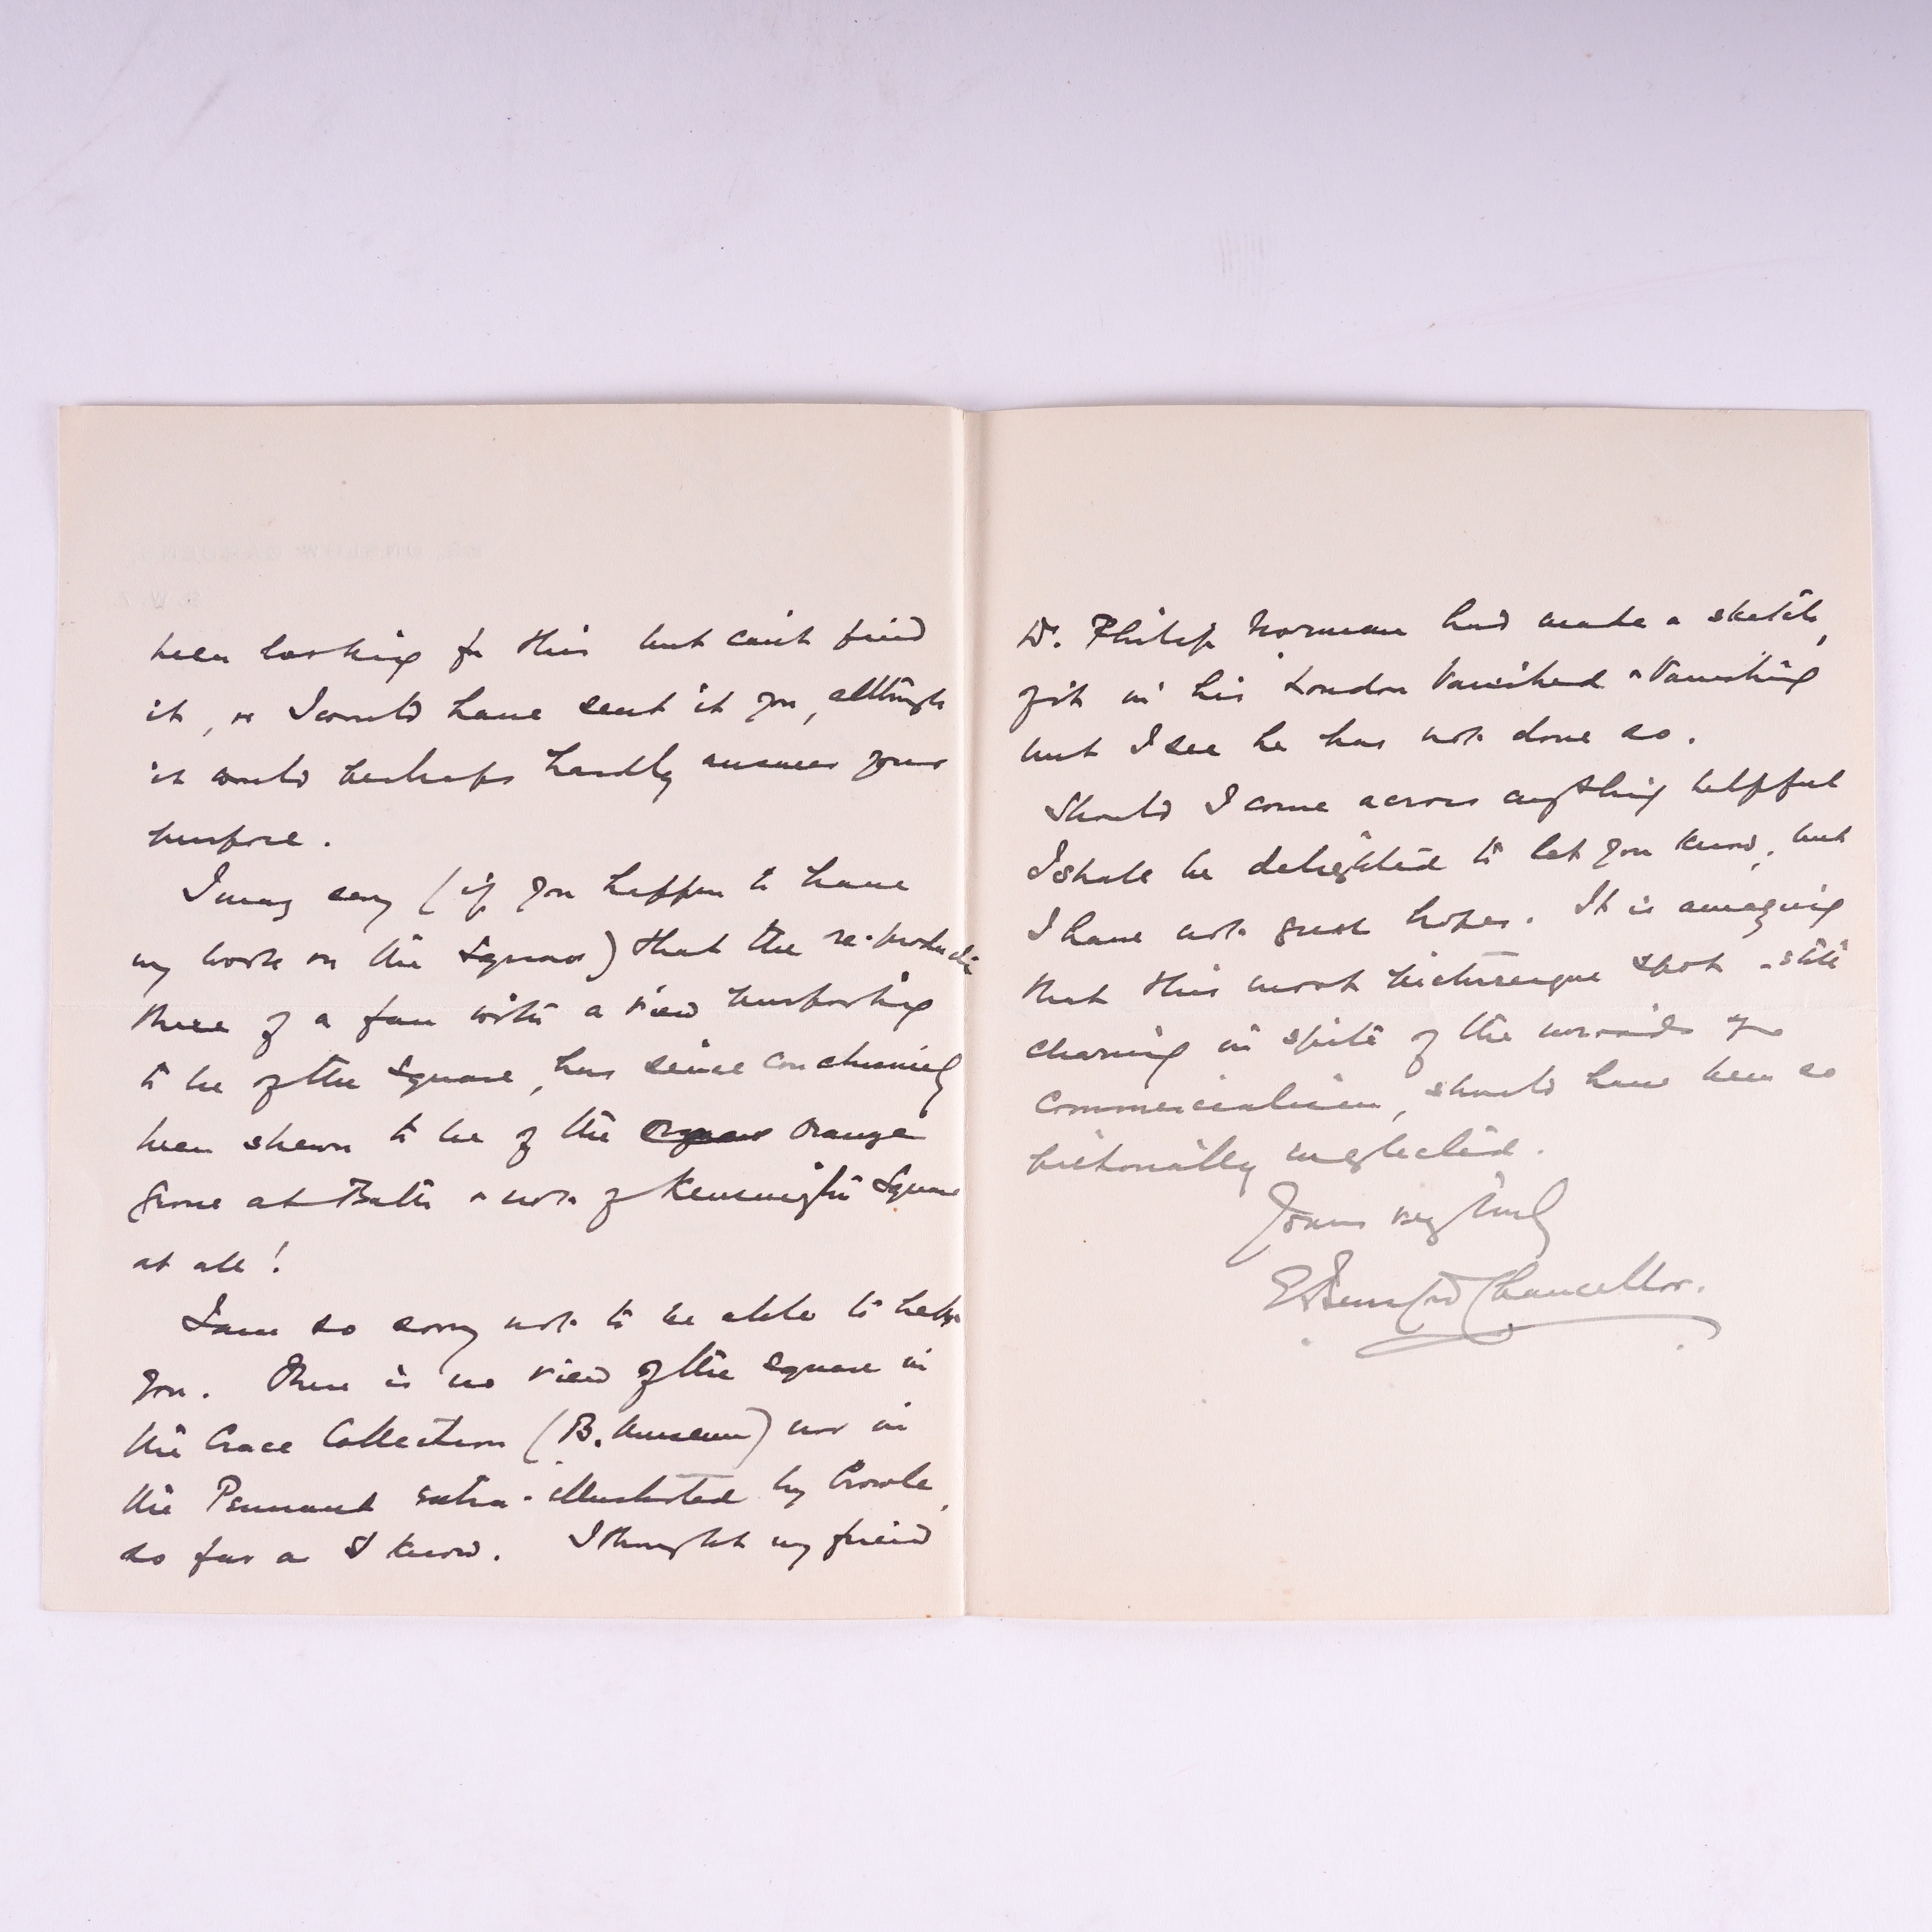 been looking for this but can't find
it, or I would have sent it you, although
it would perhaps hardly answer your
purpose.
I may say (if you happen to have
my book on the Square) that the re-production
there of a fan with a view purporting
to be of the Square, has since conclusively
been shewn to be of the Orange
Grove at Bath & not of Kensington Square
at all!
I am so sorry not to be able to help
you. There is no view of the Square in
the Crace Collection (B. Museum) nor in
the Pennant extra-illustrated by Crowle,
so far as I know. I thought my friend
Dr. Philip Norman had made a sketch,
of it in his London Vanished & Vanishing
but I see he has not done so.
Should I come across anything helpful
I shall be delighted to let you know, but
I have not great hopes. It is amazing
that this most picturesque spot - still
charming in spite of the inroads of
commercialism, should have been so
pictorially neglected.
Yours very truly
E Beresford Chancellor.